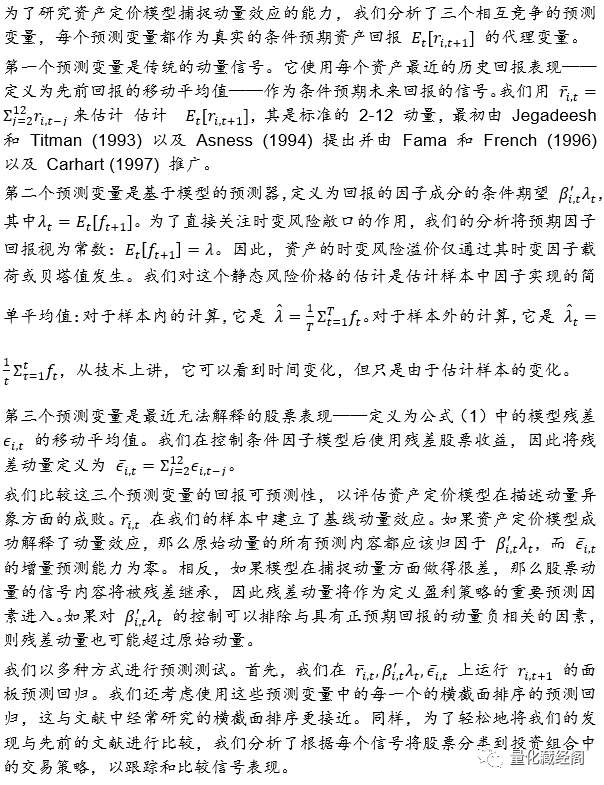 为了研究资产定价模型捕捉动量效应的能力，我们分析了三个相互竞争的预测
变量，每个预测变量都作为真实的条件预期资产回报 $E_t[r_{i,t+1}]$ 的代理变量。
第一个预测变量是传统的动量信号。它使用每个资产最近的历史回报表现——
定义为先前回报的移动平均值——作为条件预期未来回报的信号。我们用 $\bar{r}_{i,t} =$
$\Sigma_{j=2}^{12} r_{i,t-j}$ 来估计 估计 $E_t[r_{i,t+1}]$，其是标准的 2-12 动量，最初由 Jegadeesh
和 Titman (1993) 以及 Asness (1994) 提出并由 Fama 和 French (1996)
以及 Carhart (1997) 推广。
第二个预测变量是基于模型的预测器，定义为回报的因子成分的条件期望 $\beta'_{i,t}\lambda_t$，
其中$\lambda_t = E_t[f_{t+1}]$。为了直接关注时变风险敞口的作用，我们的分析将预期因子
回报视为常数：$E_t[f_{t+1}] = \lambda$。因此，资产的时变风险溢价仅通过其时变因子载
荷或贝塔值发生。我们对这个静态风险价格的估计是估计样本中因子实现的简
单平均值：对于样本内的计算，它是 $\hat{\lambda} = \frac{1}{T}\Sigma_{t=1}^{T} f_t$。对于样本外的计算，它是 $\hat{\lambda}_t =$
$\frac{1}{t}\Sigma_{\tau=1}^{t} f_t$，从技术上讲，它可以看到时间变化，但只是由于估计样本的变化。
第三个预测变量是最近无法解释的股票表现——定义为公式（1）中的模型残差
$\epsilon_{i,t}$ 的移动平均值。我们在控制条件因子模型后使用残差股票收益，因此将残
差动量定义为 $\bar{\epsilon}_{i,t} = \Sigma_{j=2}^{12} \epsilon_{i,t-j}$。
我们比较这三个预测变量的回报可预测性，以评估资产定价模型在描述动量异
象方面的成败。$\bar{r}_{i,t}$ 在我们的样本中建立了基线动量效应。如果资产定价模型成
功解释了动量效应，那么原始动量的所有预测内容都应该归因于 $\beta'_{i,t}\lambda_t$，而 $\bar{\epsilon}_{i,t}$
的增量预测能力为零。相反，如果模型在捕捉动量方面做得很差，那么股票动
量的信号内容将被残差继承，因此残差动量将作为定义盈利策略的重要预测因
素进入。如果对 $\beta'_{i,t}\lambda_t$ 的控制可以排除与具有正预期回报的动量负相关的因素，
则残差动量也可能超过原始动量。
我们以多种方式进行预测测试。首先，我们在 $\bar{r}_{i,t}, \beta'_{i,t}\lambda_t, \bar{\epsilon}_{i,t}$ 上运行 $r_{i,t+1}$ 的面
板预测回归。我们还考虑使用这些预测变量中的每一个的横截面排序的预测回
归，这与文献中经常研究的横截面排序更接近。同样，为了轻松地将我们的发
现与先前的文献进行比较，我们分析了根据每个信号将股票分类到投资组合中
的交易策略，以跟踪和比较信号表现。
量化藏经阁